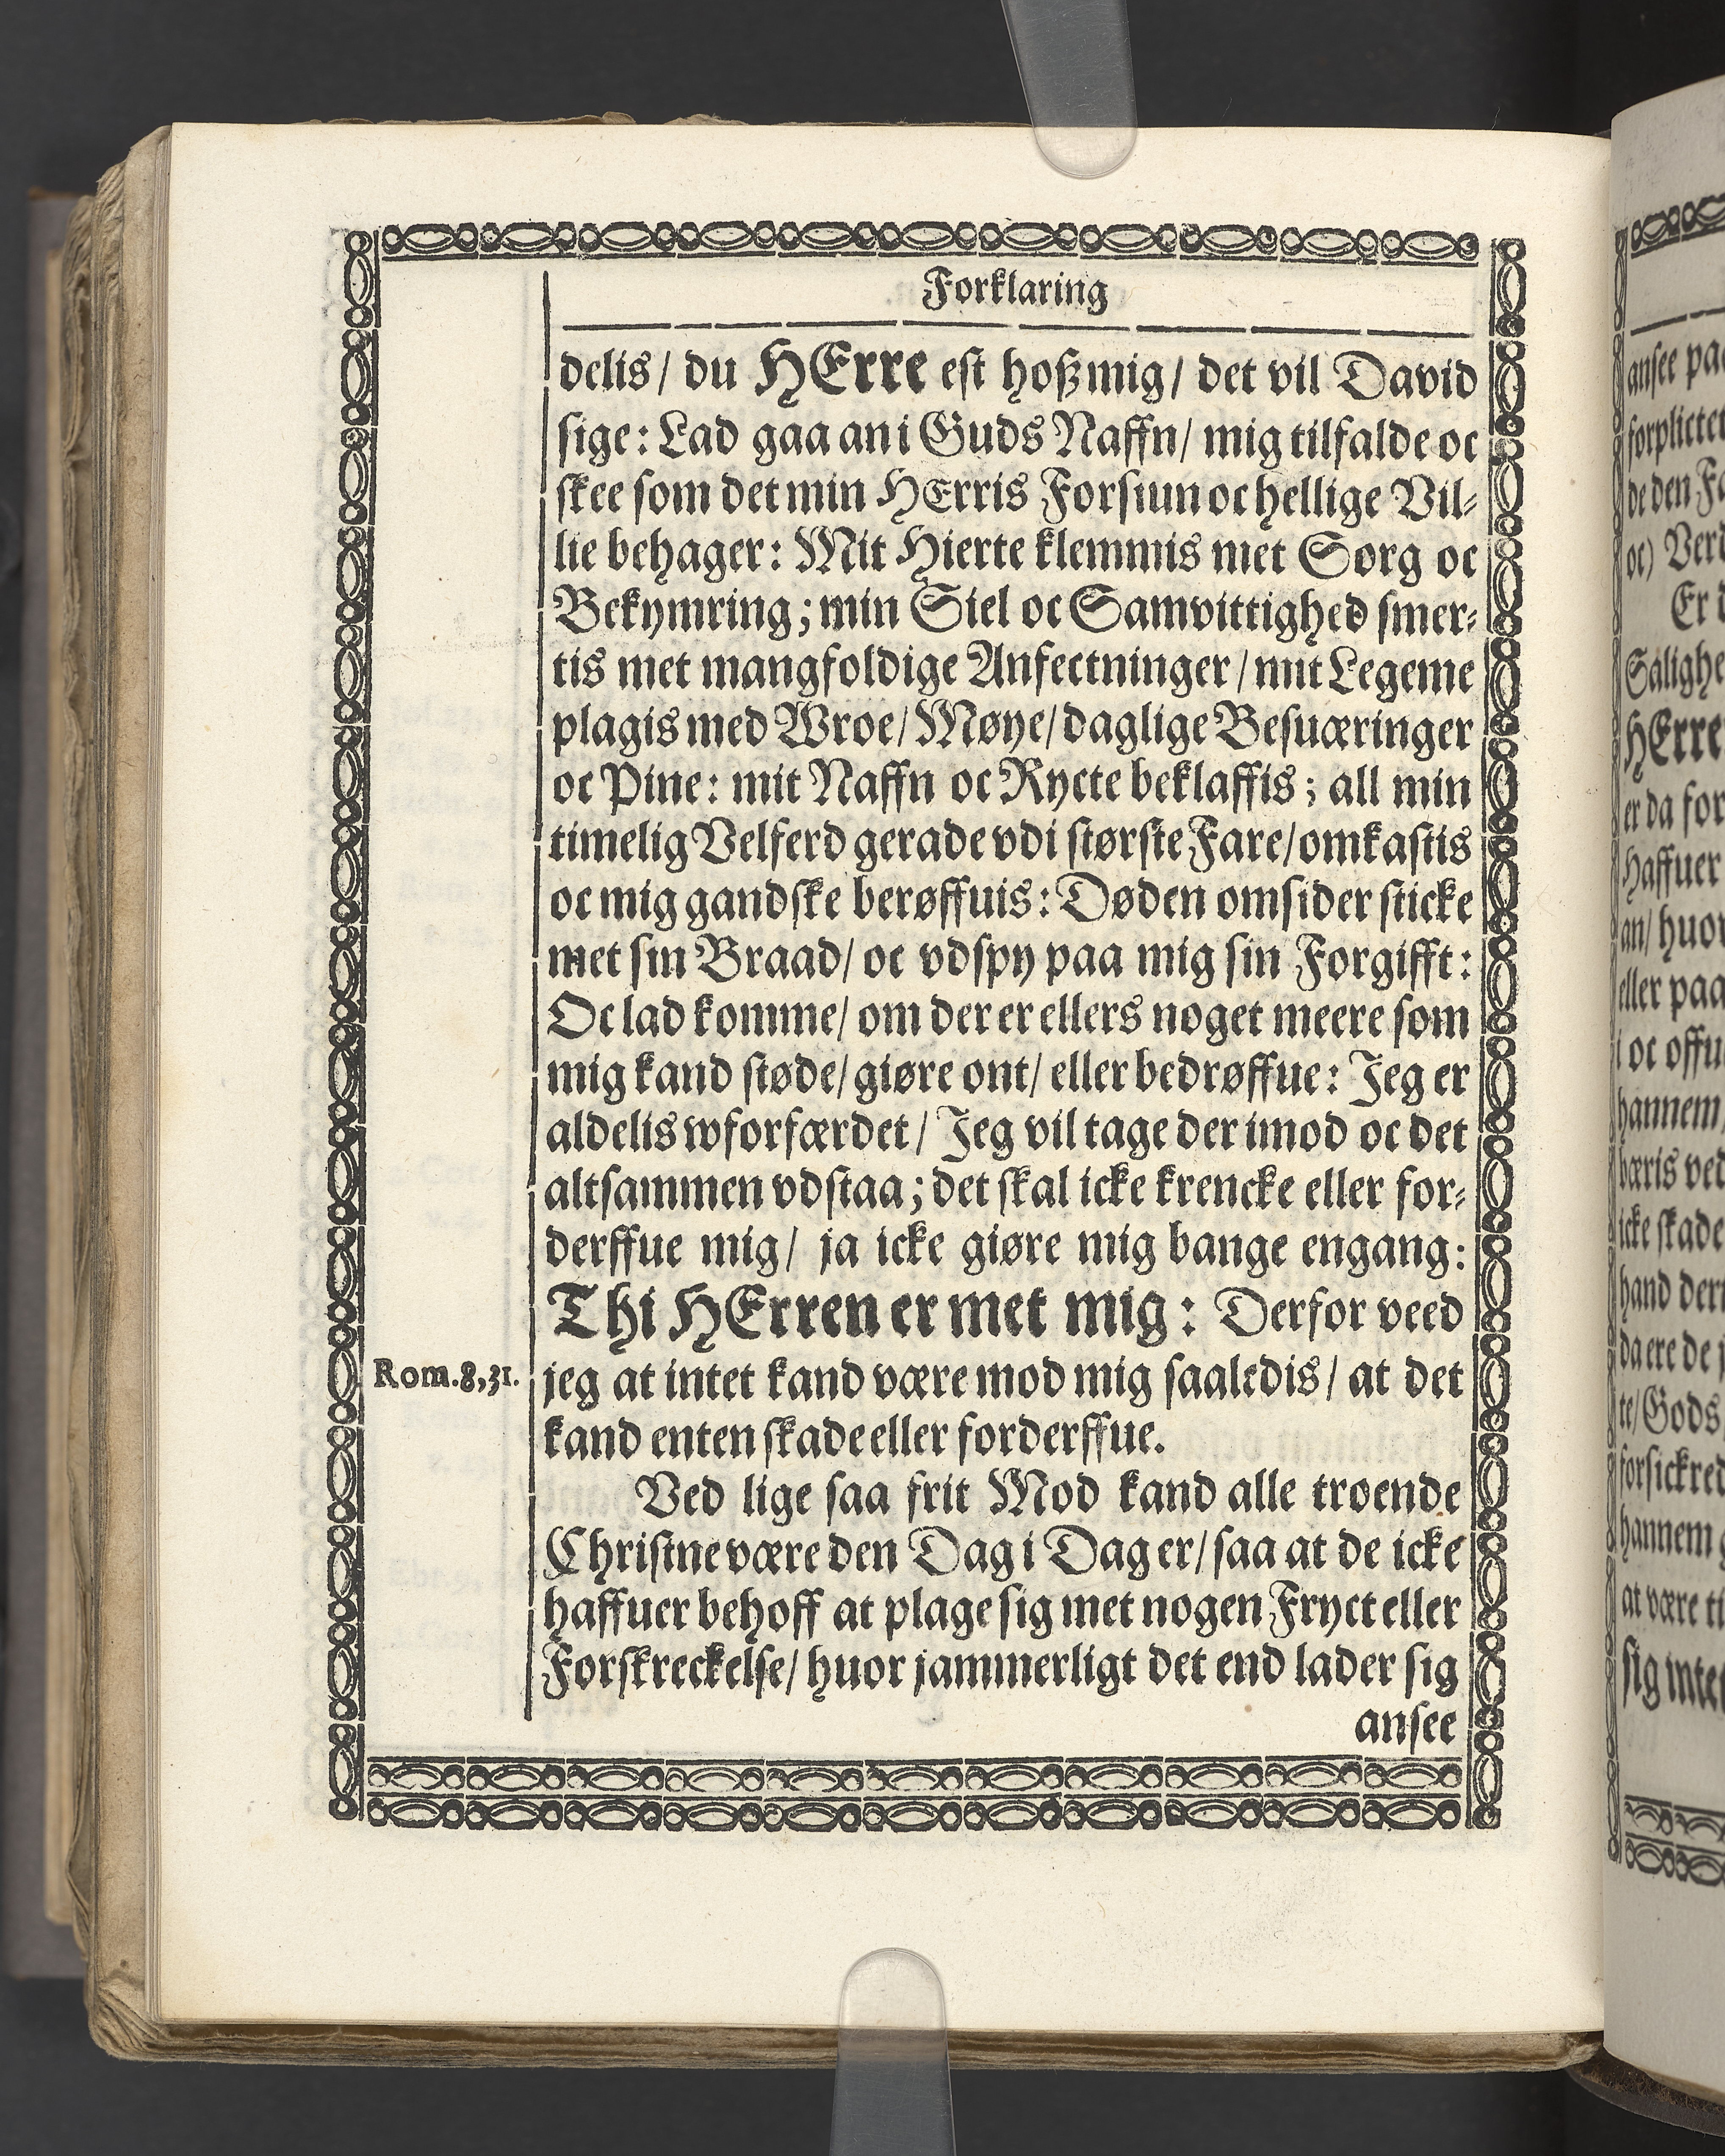 Forklaring
delis/ du HErre est hoß mig/ det vil David
sige: Lad gaa an i Guds Naffn/ mig tilfalde oc
skee som det min HErris Forsiun oc hellige Vil-
lie behager: Mit Hierte klemmis met Sorg oc
Bekymring; min Siel oc Samvittighed smer-
tis met mangfoldige Anfectninger/ mit Legeme
plagis med Wroe/ Møye/ daglige Besuæringer
oc Pine: mit Naffn oc Rycte beklaffis; all min
timelig Velferd gerade vdi største Fare/ omkastis
oc mig gandske berøffuis: Døden omsider sticke
met sin Braad/ oc vdspy paa mig sin Forgifft:
Oc lad komme/ om der er ellers noget meere som
mig kand støde/ giøre ont/ eller bedrøffue: Jeg er
aldelis wforfærdet/ Jeg vil tage der imod oc det
altsammen vdstaa; det skal icke krencke eller for-
derffue mig/ ja icke giøre mig bange engang:
Thi HErren er met mig: Derfor veed
Rom.8,31.
jeg at intet kand være mod mig saaledis/ at det
kand enten skade eller forderffue.
Ved lige saa frit Mod kand alle troende
Christne være den Dag i Dag er/ saa at de icke
haffuer behoff at plage sig met nogen Fryct eller
Forskreckelse/ huor jammerligt det end lader sig
ansee
ansee
Er
HErre
er da for
Haffuer
eller paa
i oc offu
hannem
icke skade
da ere de
te/ Gods
at være